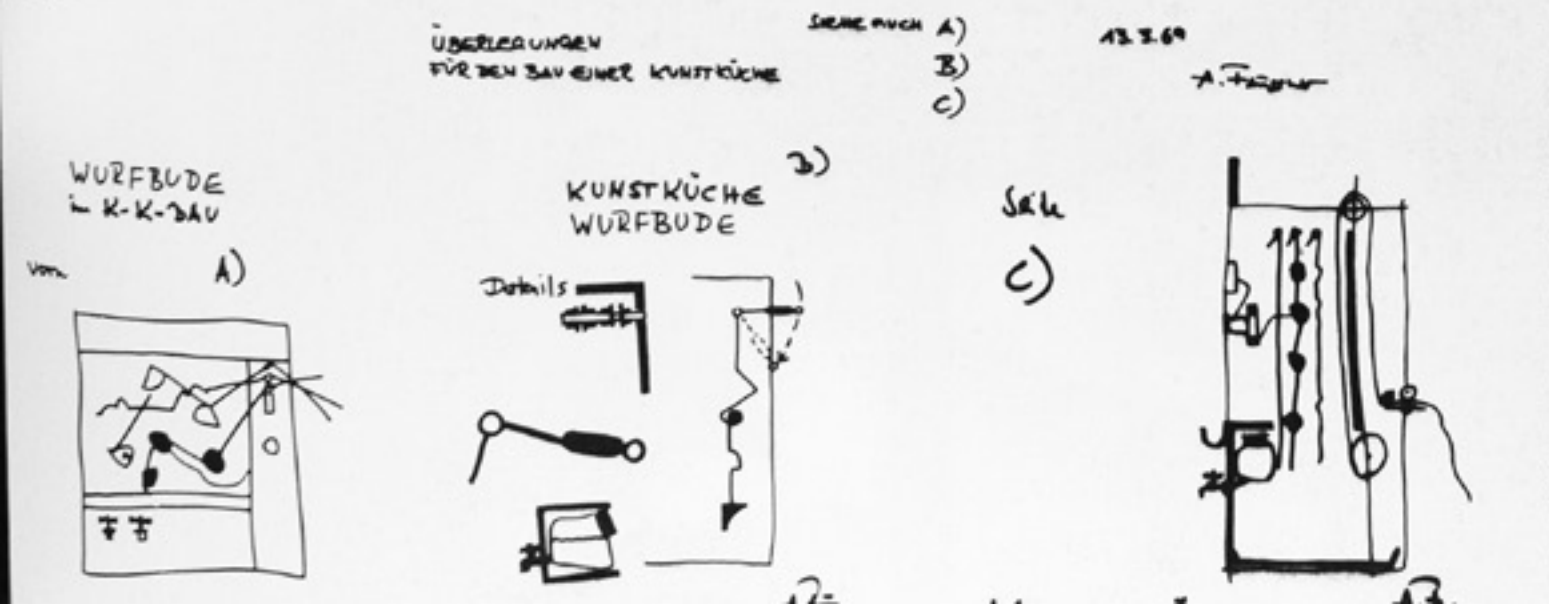 ÜBERLEGUNGEN
FÜR DEN BAU EINER KUNSTKÜCHE
SIEHE AUCH A)
B)
C)
WURFBUDE
in K-K-BAU
von
A)
B)
KUNSTKÜCHE
WURFBUDE
Details
C)